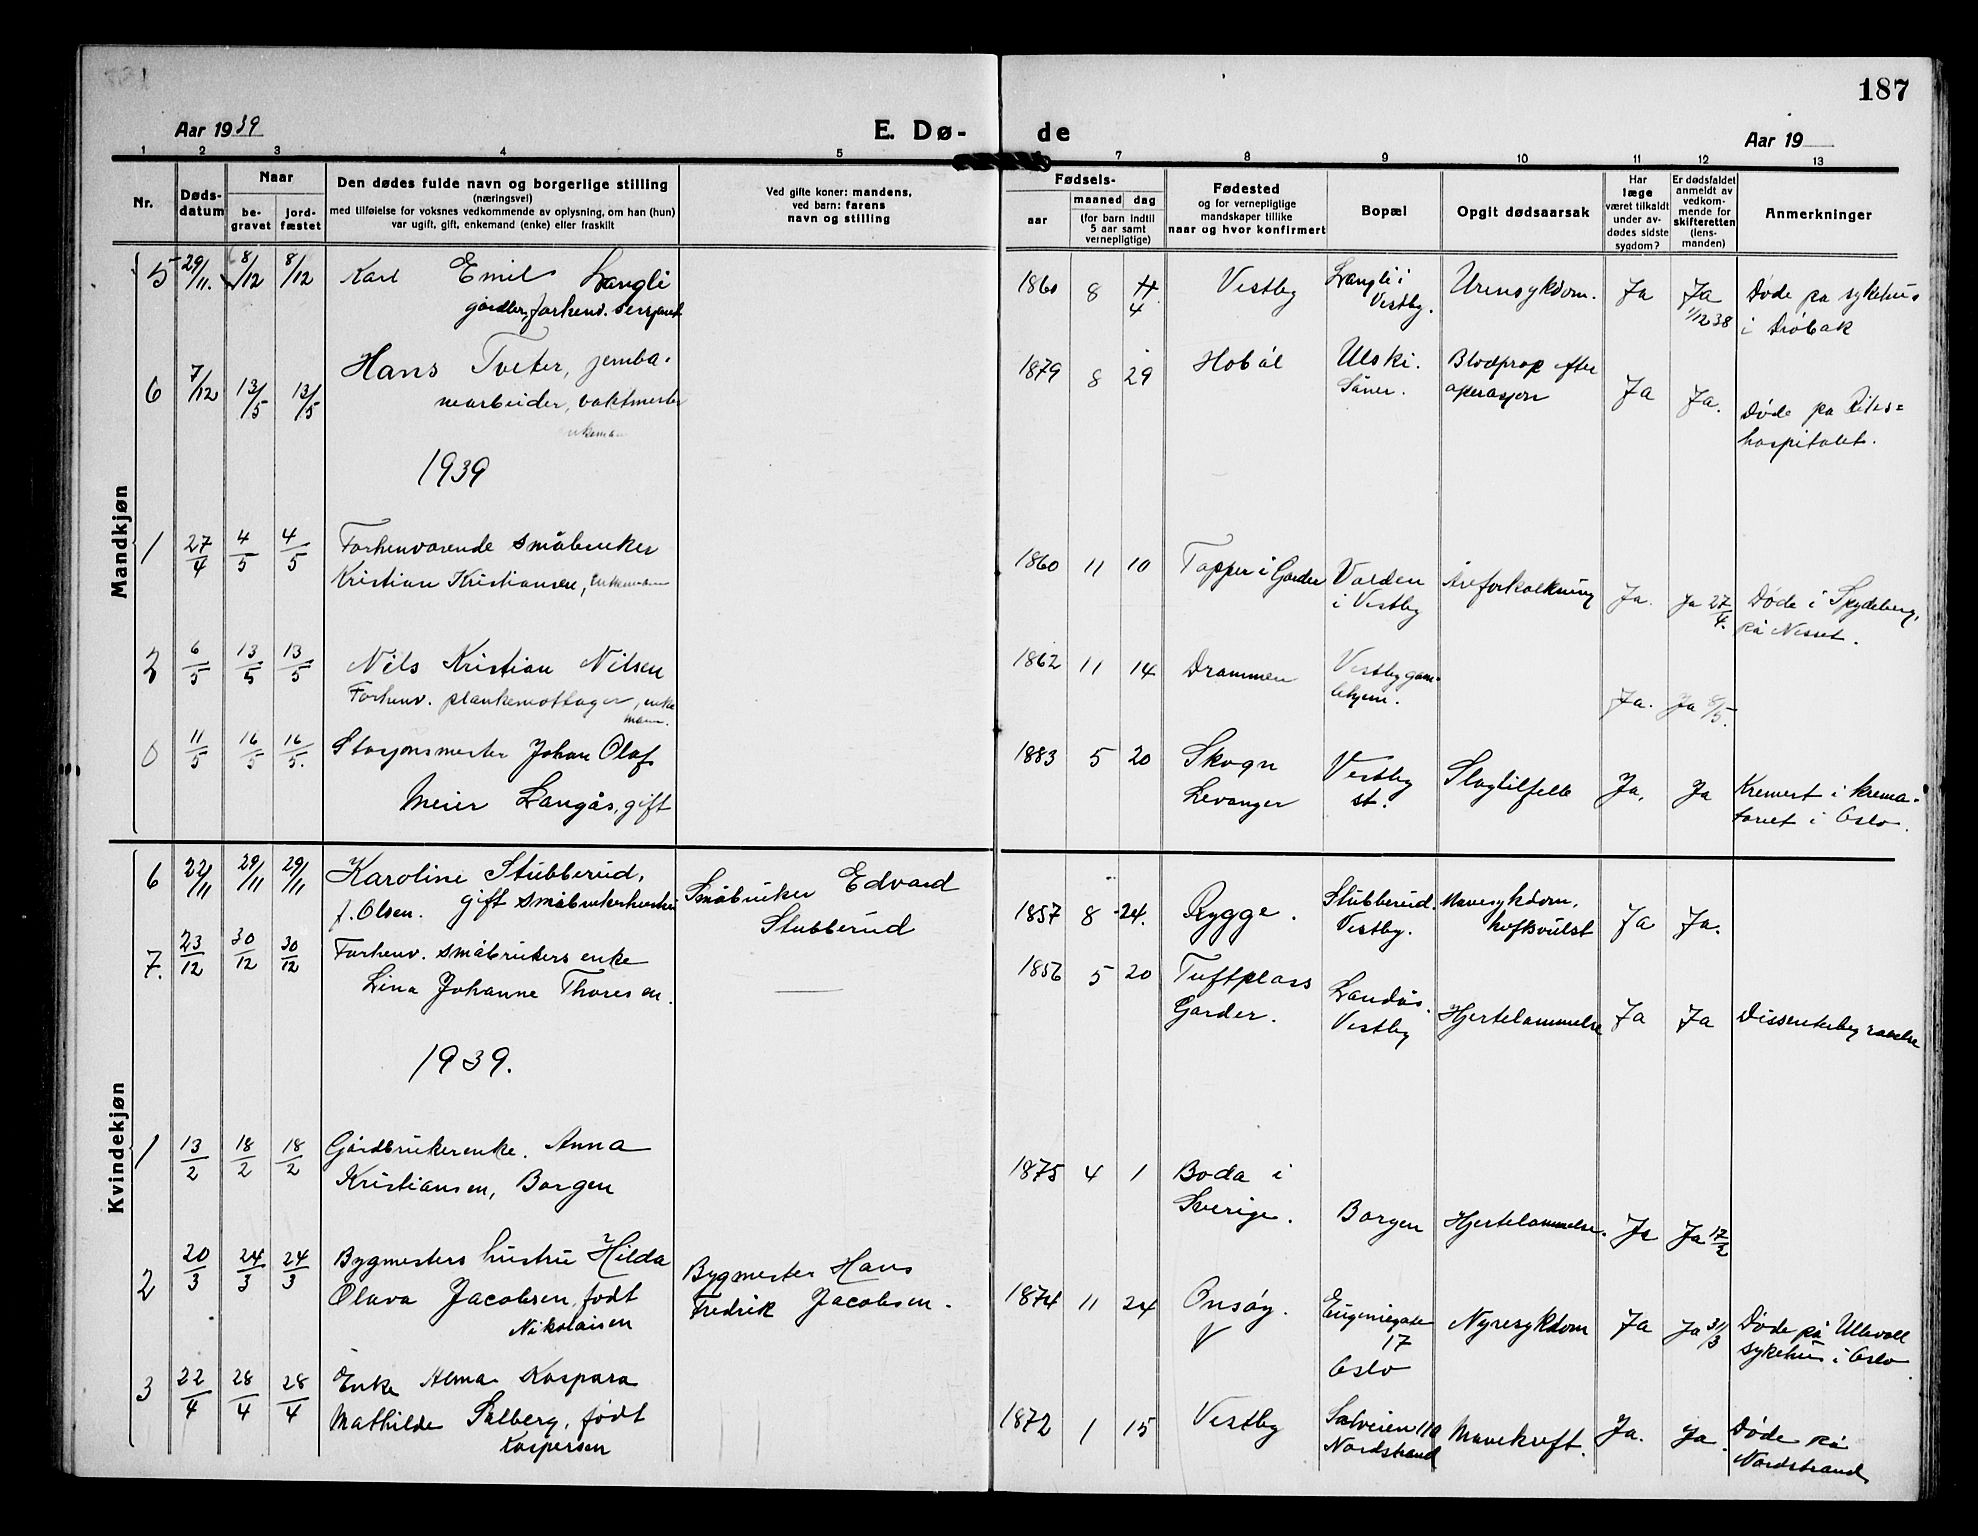 187
Aar 1939
E. Dø-
de
Aar 19
1 2 3 4 5 7 8 9 10 11 12 13
Nr.
Døds-
datum
Naar
be-
gravet
jord-
fæstet
Den dødes fulde navn og borgerlige stilling
(næringsvei)
med tilføielse for voksnes vedkommende av oplysning, om han (hun)
var ugift, gift, enkemand (enke) eller fraskilt
Ved gifte koner: mandens,
ved barn: farens
navn og stilling
Fødsels-
aar
maaned dag
(for barn indtil
5 aar samt
vernepligtige)
Fødested
og for vernepligtige
mandskaper tillike
naar og hvor konfirmert
Bopæl
Opgit dødsaarsak
Har
læge
været tilkaldt
under av-
dødes sidste
sygdom?
Er dødsfaldet
anmeldt av
vedkom-
mende for
skifteretten
(lens-
manden)
Anmerkninger
Mandkjøn
5 29/11. 8/12 8/12 Karl Emil Langli
gårdbr, forhenv. sersjant
1860 8 4 Vestby Langli i
Vestby.
Urinsykdom. Ja Ja
1/12 38
Døde på sykehus
i Drøbak
6 7/12 13/5 13/5 Hans Tveter, jernba-
nearbeider, vaktmester
enkeman
1879 8 29 Hobøl Ulski.
Såner.
Blodprop efter
operasjon
Ja Ja.
Døde på Riks=
hospitalet.
1939
1 27/4 4/5 4/5 Forhenværende småbruker
Kristian Kristiansen, enkemann
1860 11 10 Topper i Garder Volden
i Vestby
Åreforkalkning Ja. Ja 27/4.
Døde i Spydeberg,
på Nesset.
2 6/5 13/5 13/5 Nils Kristian Nilsen
Forhenv. plankemottager, enke
mann.
1862 11 14 Drammen Vestby gam-
lehjem.
Ja. Ja 8/5.
0 11/5 16/5 16/5. Stasjonsmester Johan Olaf
Meier Langås, gift
1883 5 20 Skogn
Levanger
Vestby
st.
Slagtilfelle Ja. Ja
Kremert i krema-
toriet i Oslo.
Kvindekjøn
6 22/11 29/11 29/11 Karoline Stubberud,
f. Olsen. gift småbrukerhustru
Småbruker Edvard
Stubberud
1857 8 24. Rygge. Stubberud.
Vestby.
Mavesykdom,
kreftsvulst
Ja Ja.
7. 23/12 30/12 30/12 Forhenv. småbrukers enke
Lina Johanne Thoresen.
1856 5 20 Tuftplass
Garder.
Landås.
Vestby
Hjertelammelse Ja Ja Dissenterbegravelse
1939.
1 13/2 18/2 18/2 Gårdbrukerenke. Anna
Kristiansen, Borgen
1875 4 1 Boda i
Sverige.
Borgen Hjertelammelse. Ja Ja 17/2
2 20/3 24/3 24/3 Bygmesters hustru Hilda
Olava Jacobsen, født
Nikolaisen
Bygmester Hans
Fredrik Jacobsen.
1874 11 24 Onsøy.
V
Eugeniegate
17
Oslo
Nyresykdom Ja Ja 31/3
Døde på Ullevoll
sykehus i Oslo
3 22/4 28/4 28/4 Enke Alma Kaspara
Mathilde Solberg, født
Kaspersen
1872 1 15 Vestby Solveien 110
Nordstrand
Mavekreft. Ja. Ja.
Døde på
Nordstrand